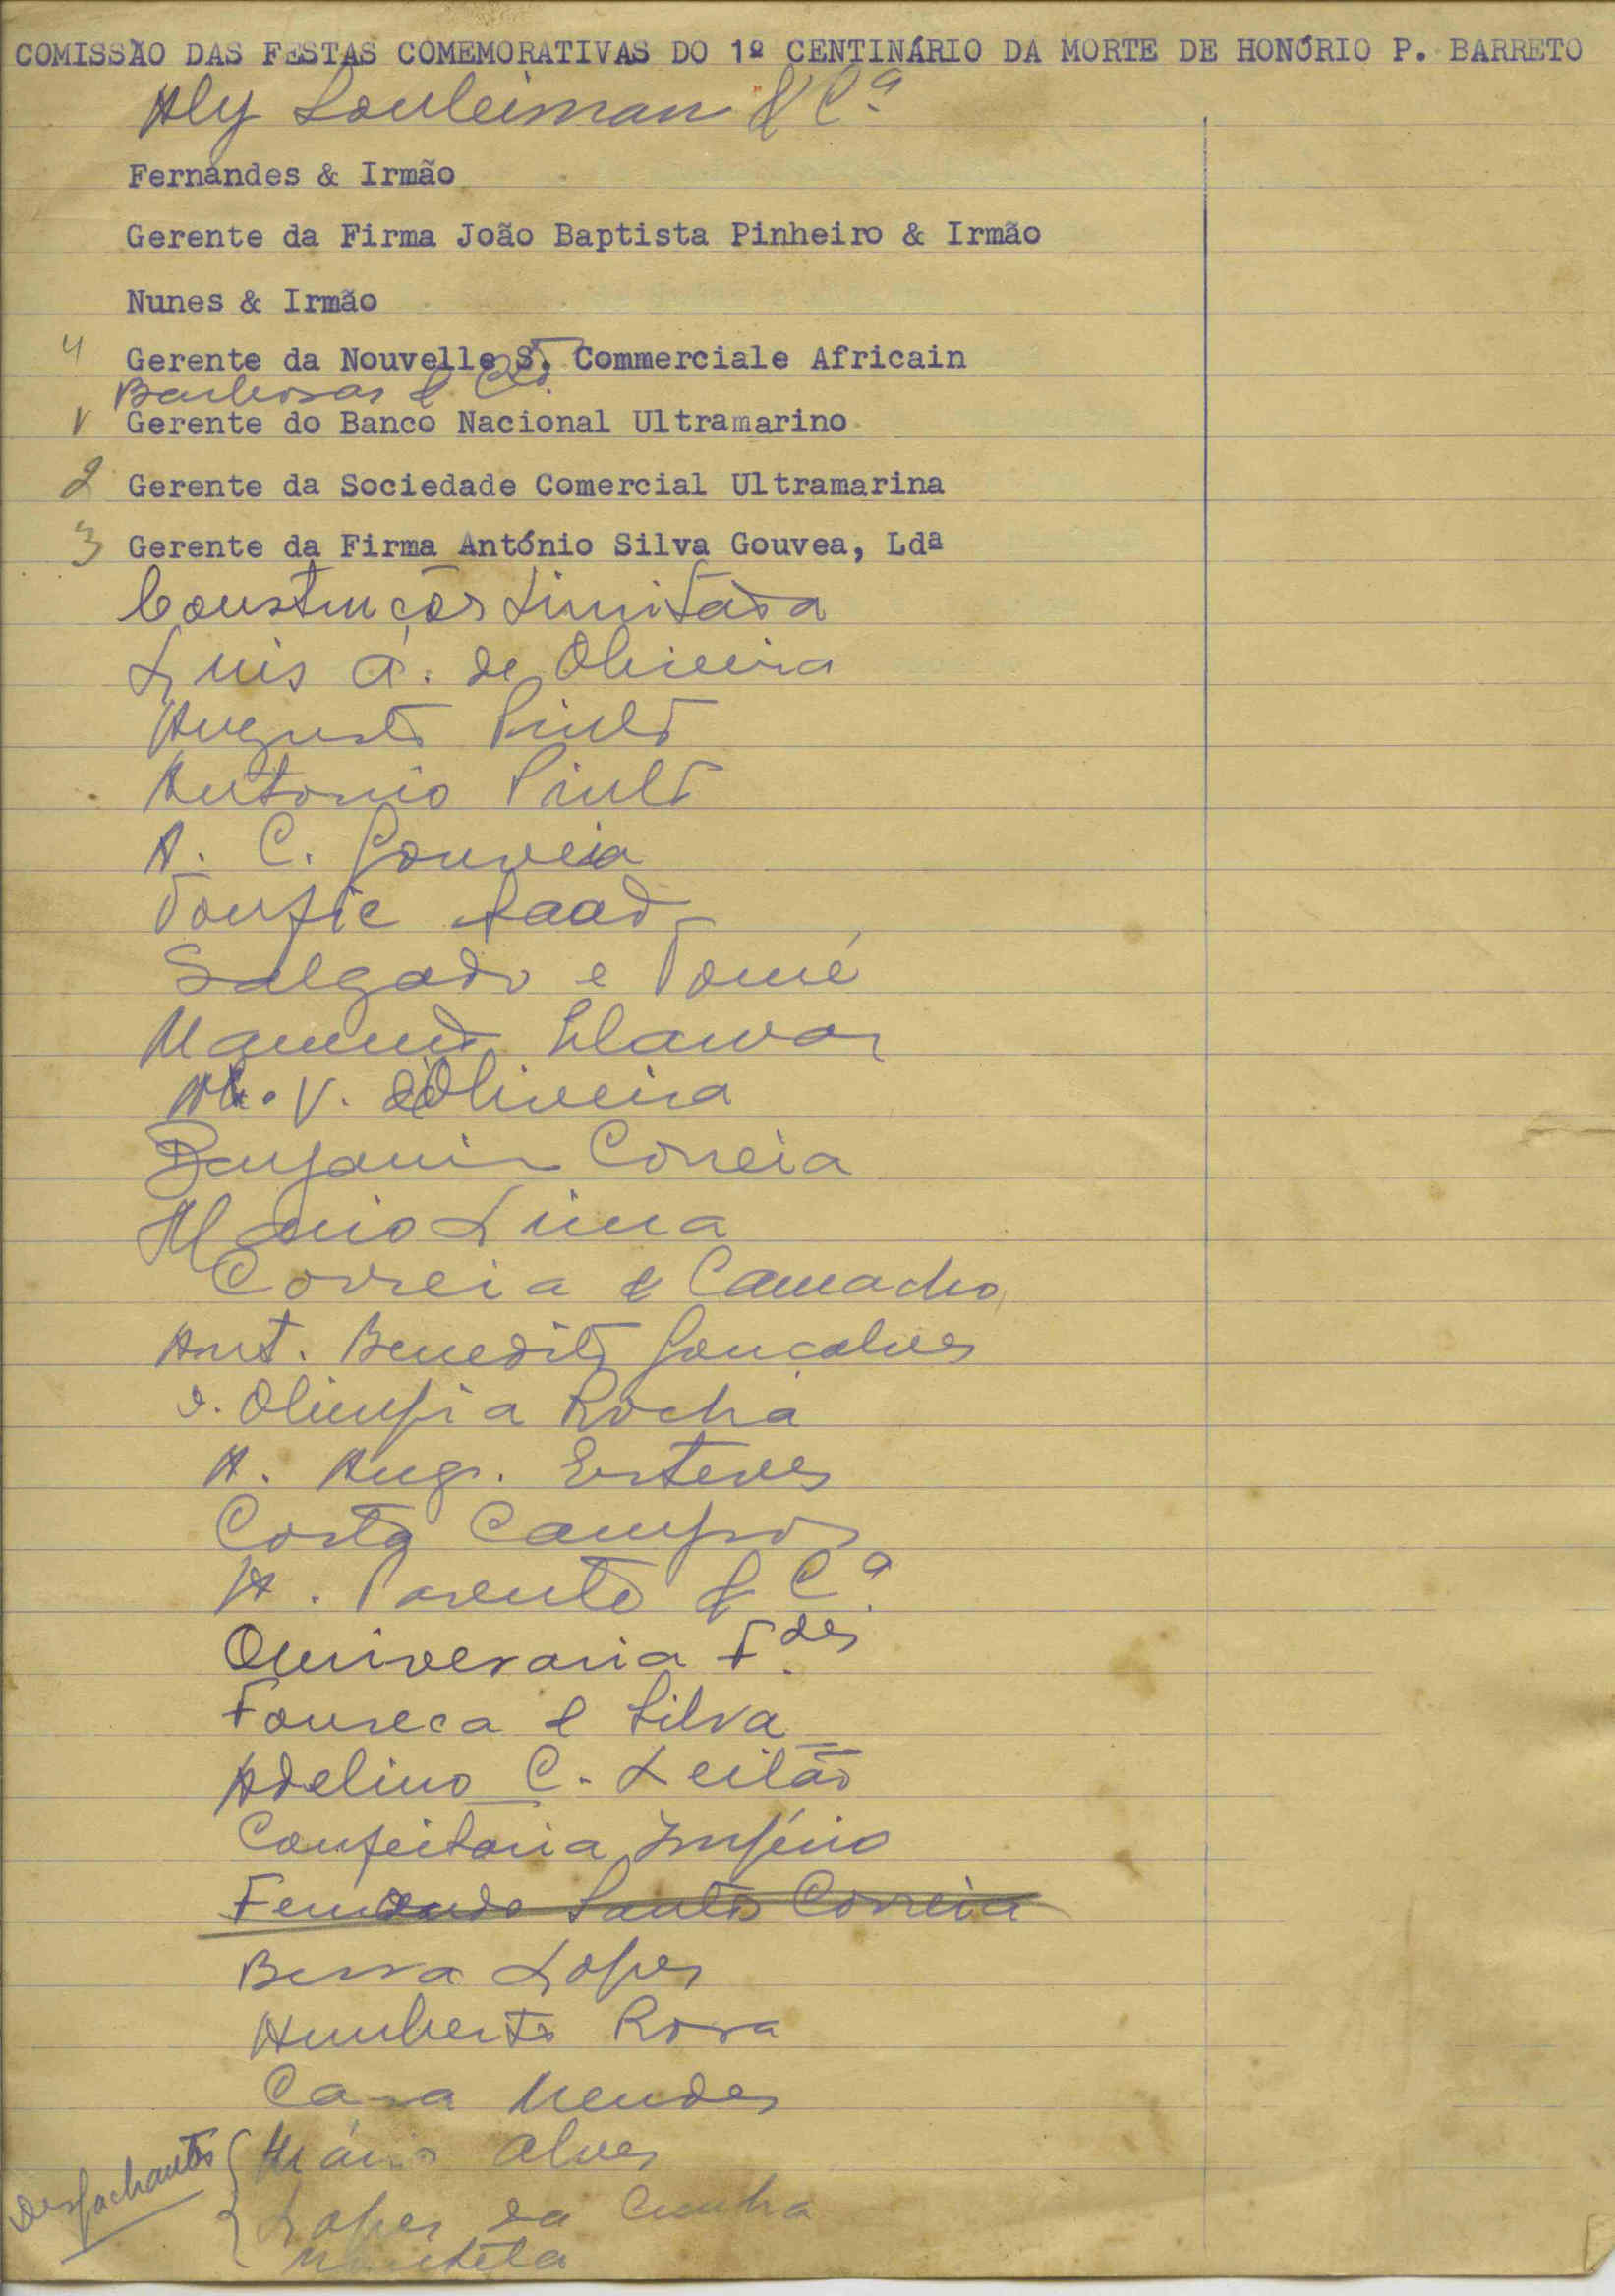 COMISSÃO DAS FESTAS COMEMORATIVAS DO 1º CENTINÁRIO DA MORTE DE HONÓRIO P. BARRETO
Aly Souleiman & Cª
Fernandes & Irmão
Gerente da Firma João Baptista Pinheiro & Irmão
Nunes & Irmão
4 Gerente da Nouvelle S. Commerciale Africain
Barbosas & Ctª.
1 Gerente do Banco Nacional Ultramarino
2 Gerente da Sociedade Comercial Ultramarina
3 Gerente da Firma António Silva Gouvea, Ldª
Construções Limitada
Luis A. de Oliveira
Augusto Pinto
Antonio Pinto
A. C. Gouveia
Toufic Saad
Salgado e Tomé
Mamud Elawar
M. V. d'Oliveira
Benjamin Correia
Mario Lima
Correia & Camacho
Ant. Benedito Gonçalves
D. Olimpia Rocha
A. Aug. Esteves
Costa Campos
A. Parente & Cª
Ourivesaria F.des
Fonseca & Silva
Adelino C. Leitão
Confeitaria Império
Fernando Santos Correia
Bessa Lopes
Humberto Rosa
Casa Mendes
Despachantes { Mário Alves
Lopes da Cunha